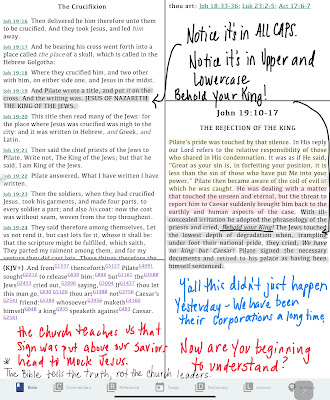 The Crucifixion
Joh 19:16 Then delivered he him therefore unto them
to be crucified. And they took Jesus, and led him
away.
Joh 19:17 And he bearing his cross went forth into a
place called the place of a skull, which is called in the
Hebrew Golgotha:
Joh 19:18 Where they crucified him, and two other
with him, on either side one, and Jesus in the midst.
Joh 19:19 And Pilate wrote a title, and put it on the
cross. And the writing was, JESUS OF NAZARETH
THE KING OF THE JEWS.
Joh 19:20 This title then read many of the Jews: for
the place where Jesus was crucified was nigh to the
city: and it was written in Hebrew, and Greek, and
Latin.
Joh 19:21 Then said the chief priests of the Jews to
Pilate, Write not, The King of the Jews; but that he
said, I am King of the Jews.
Joh 19:22 Pilate answered, What I have written I have
written.
Joh 19:23 Then the soldiers, when they had crucified
Jesus, took his garments, and made four parts, to
every soldier a part; and also his coat: now the coat
was without seam, woven from the top throughout.
Joh 19:24 They said therefore among themselves, Let
us not rend it, but cast lots for it, whose it shall be:
that the scripture might be fulfilled, which saith,
They parted my raiment among them, and for my
(KJV+) And from G1537 thenceforth G5127 Pilate G4091
sought G2212 to release G630 him, G846 but G1161 the G3588
Jews G2453 cried out, G2896 saying, G3004 If G1437 thou let
this man go, G630 G5126 thou art G1488 not G3756 Caesar's G2541
friend: G5384 whosoever maketh G4160
himself G848 a king G935 speaketh against G483 Caesar.
G2541
the Church teaches us that
Sign was put above our Saviors
head to Mock Jesus.
* The Bible tells the truth, not the Church leaders.
thou art: Joh 18:33-36; Luk 23:2-5; Act 17:6-7
Notice it's in ALL CAPS.
Notice it's in Upper and
Lowercase
Behold your King!
John 19:10-17
THE REJECTION OF THE KING
Pilate's pride was touched by that silence. In His reply
our Lord refers to the relative responsibility of those
who shared in His condemnation. It was as if He said,
"Great as your sin is, in forfeiting your position, it is
less than the sin of those who have put Me into your
power." Pilate then became aware of the coil of evil in
which he was caught. He was dealing with a matter
that touched the unseen and eternal, but the threat to
report him to Caesar suddenly brought him back to the
earthly and human aspects of the case. With ill-
concealed irritation he adopted the phraseology of the
priests and cried, Behold your King! The Jews touched
the lowest depth of degradation when, trampling
under foot their national pride, they cried, We have
no king but Caesar! Pilate signed the necessary
documents and retired to his palace as having been
himself sentenced.
Y'all this didn't just happen
Yesterday - We have been
their Corporations a long time.
Now are you beginning
to understand?
Bible
Commentary
Reference
Today
Dictionary
Lesson